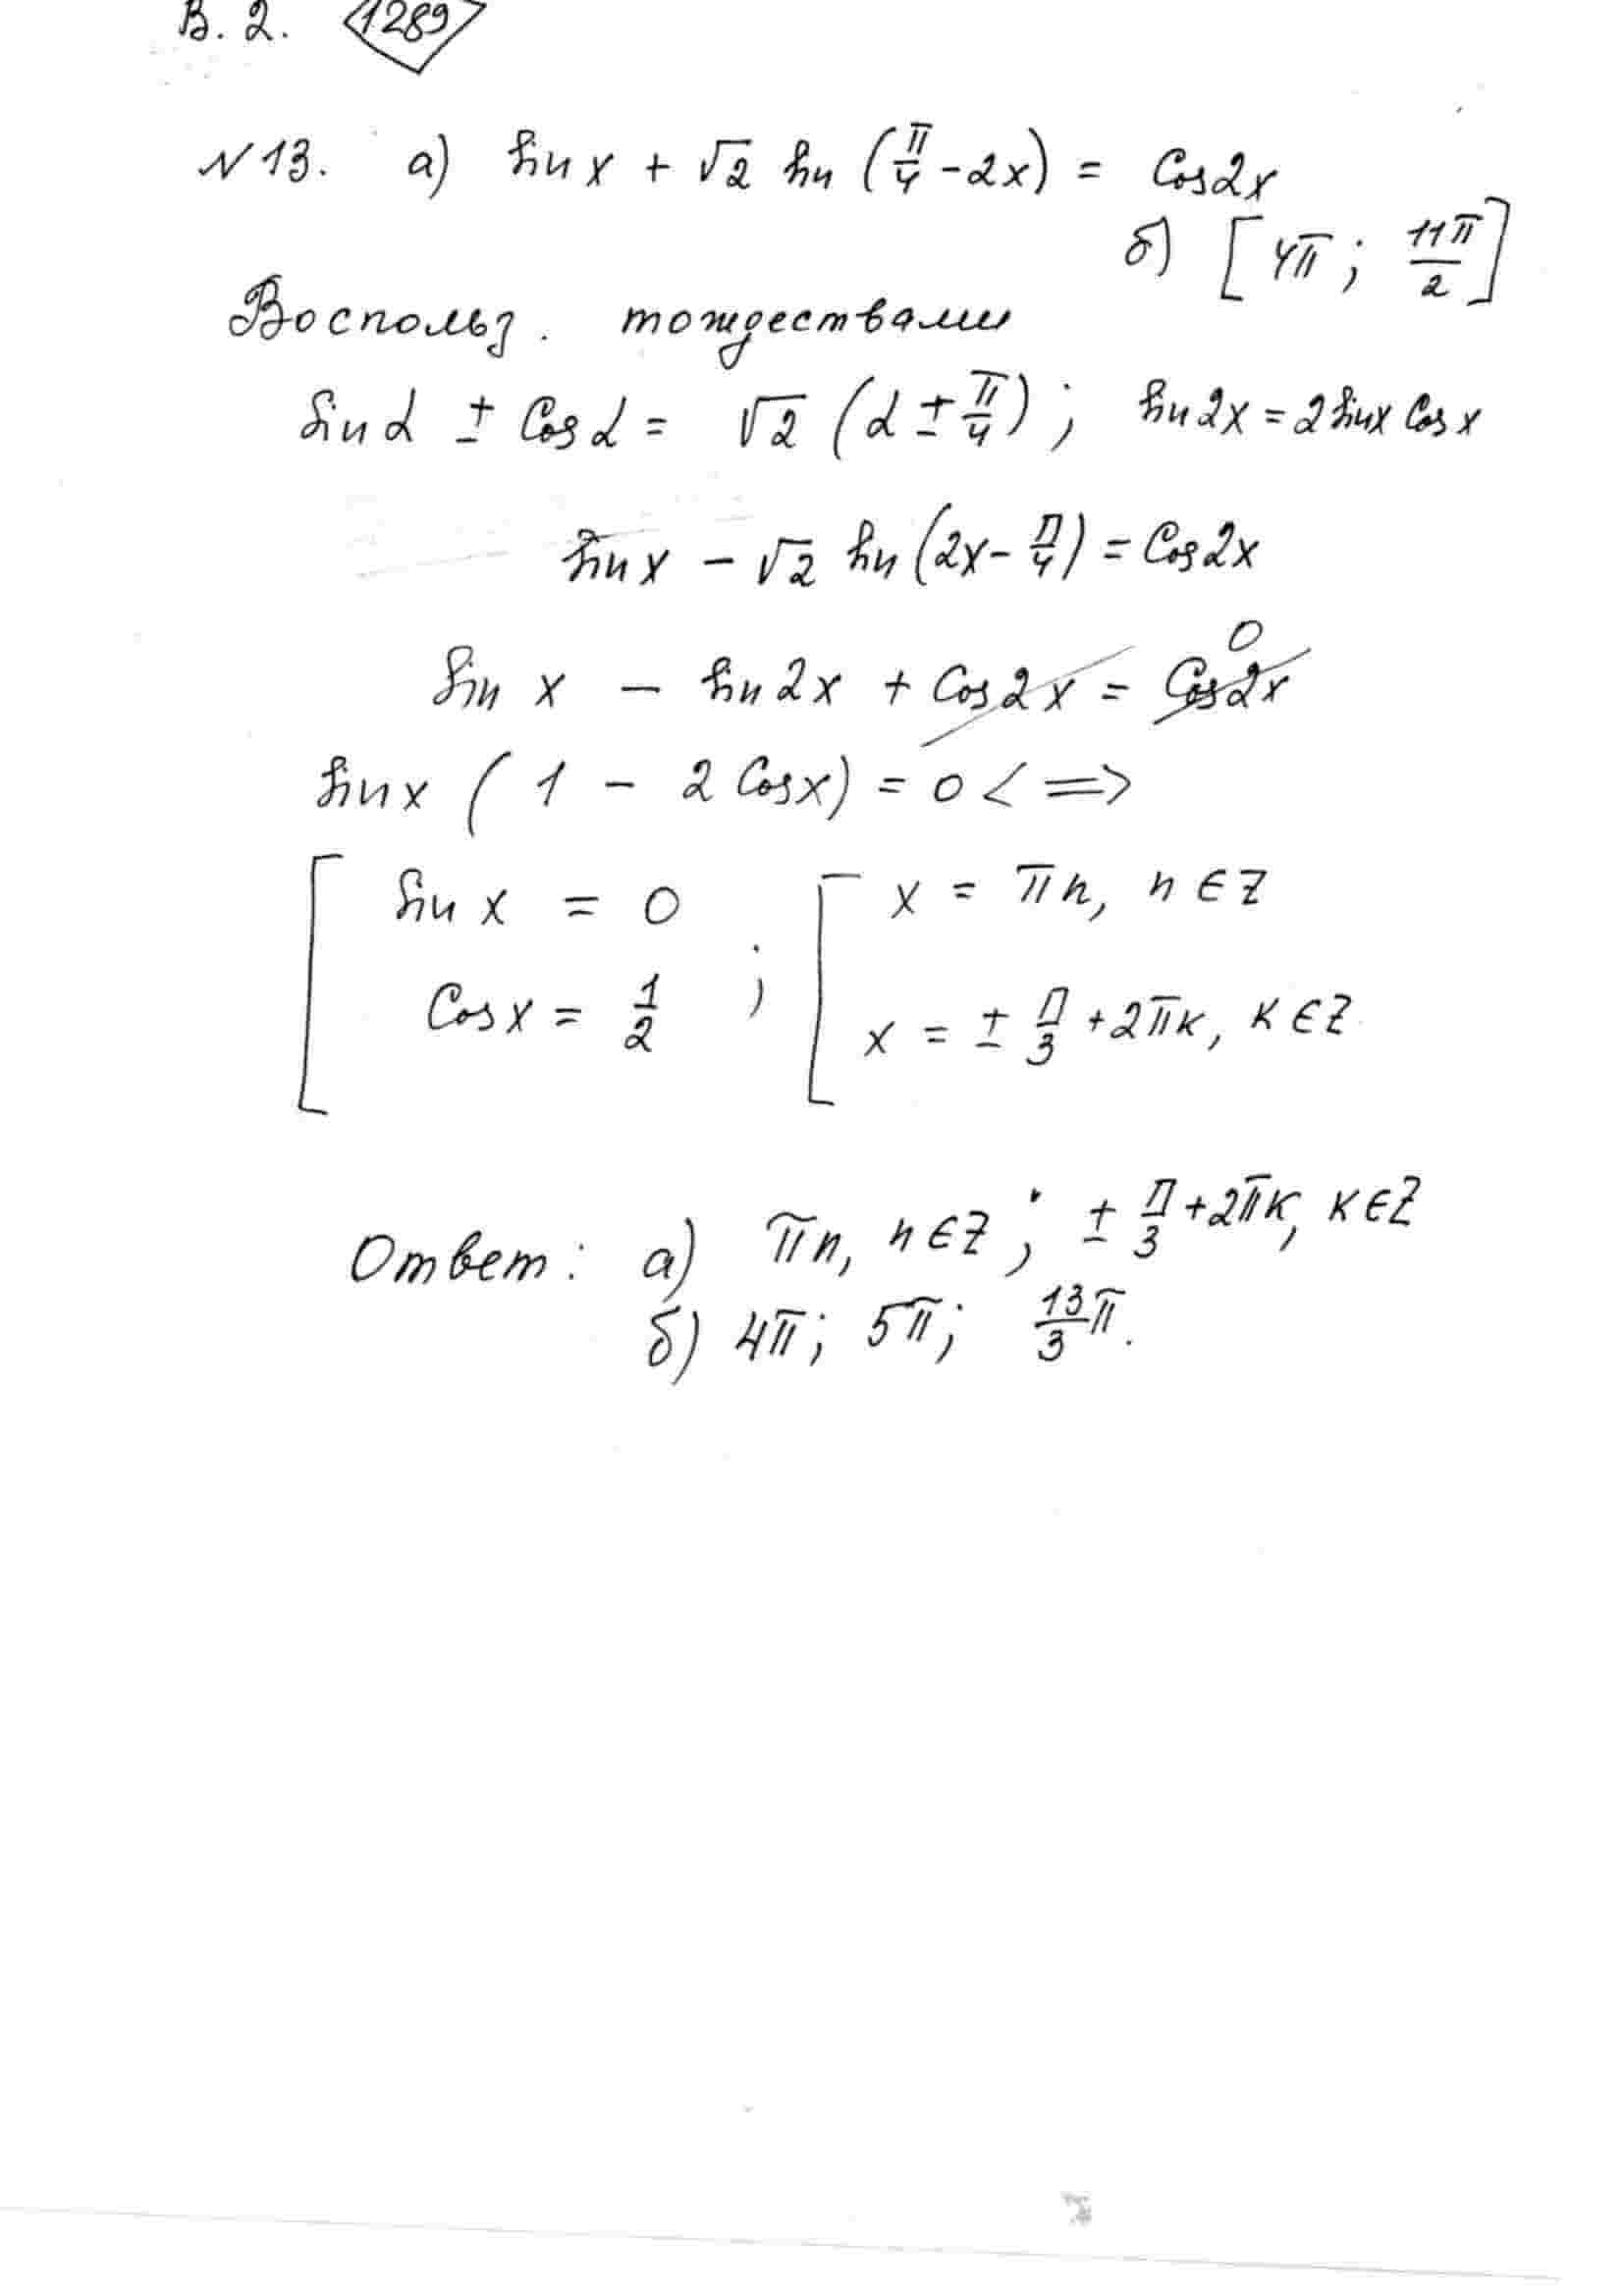 В. 2. 1289
N 13. а) sin x + √2 sin (π/4 - 2x) = Cos2x
б) [4π ; 11π/2]
Воспольз. тождествами
Sin α ± Cos α = √2 (α ± π/4) ; sin 2x = 2 sin x Cos x
sin x - √2 sin (2x - π/4) = Cos2x
Sin x - sin 2x + Cos2x = Cos2x 0
sin x ( 1 - 2 Cosx) = 0 < =>
[ sin x = 0 ; [ x = πn, n ∈ Z
Cos x = 1/2 x = ± π/3 + 2πк, к ∈ Z
Ответ: а) πn, n ∈ Z ; ± π/3 + 2πк, к ∈ Z
б) 4π ; 5π ; 13/3 π.